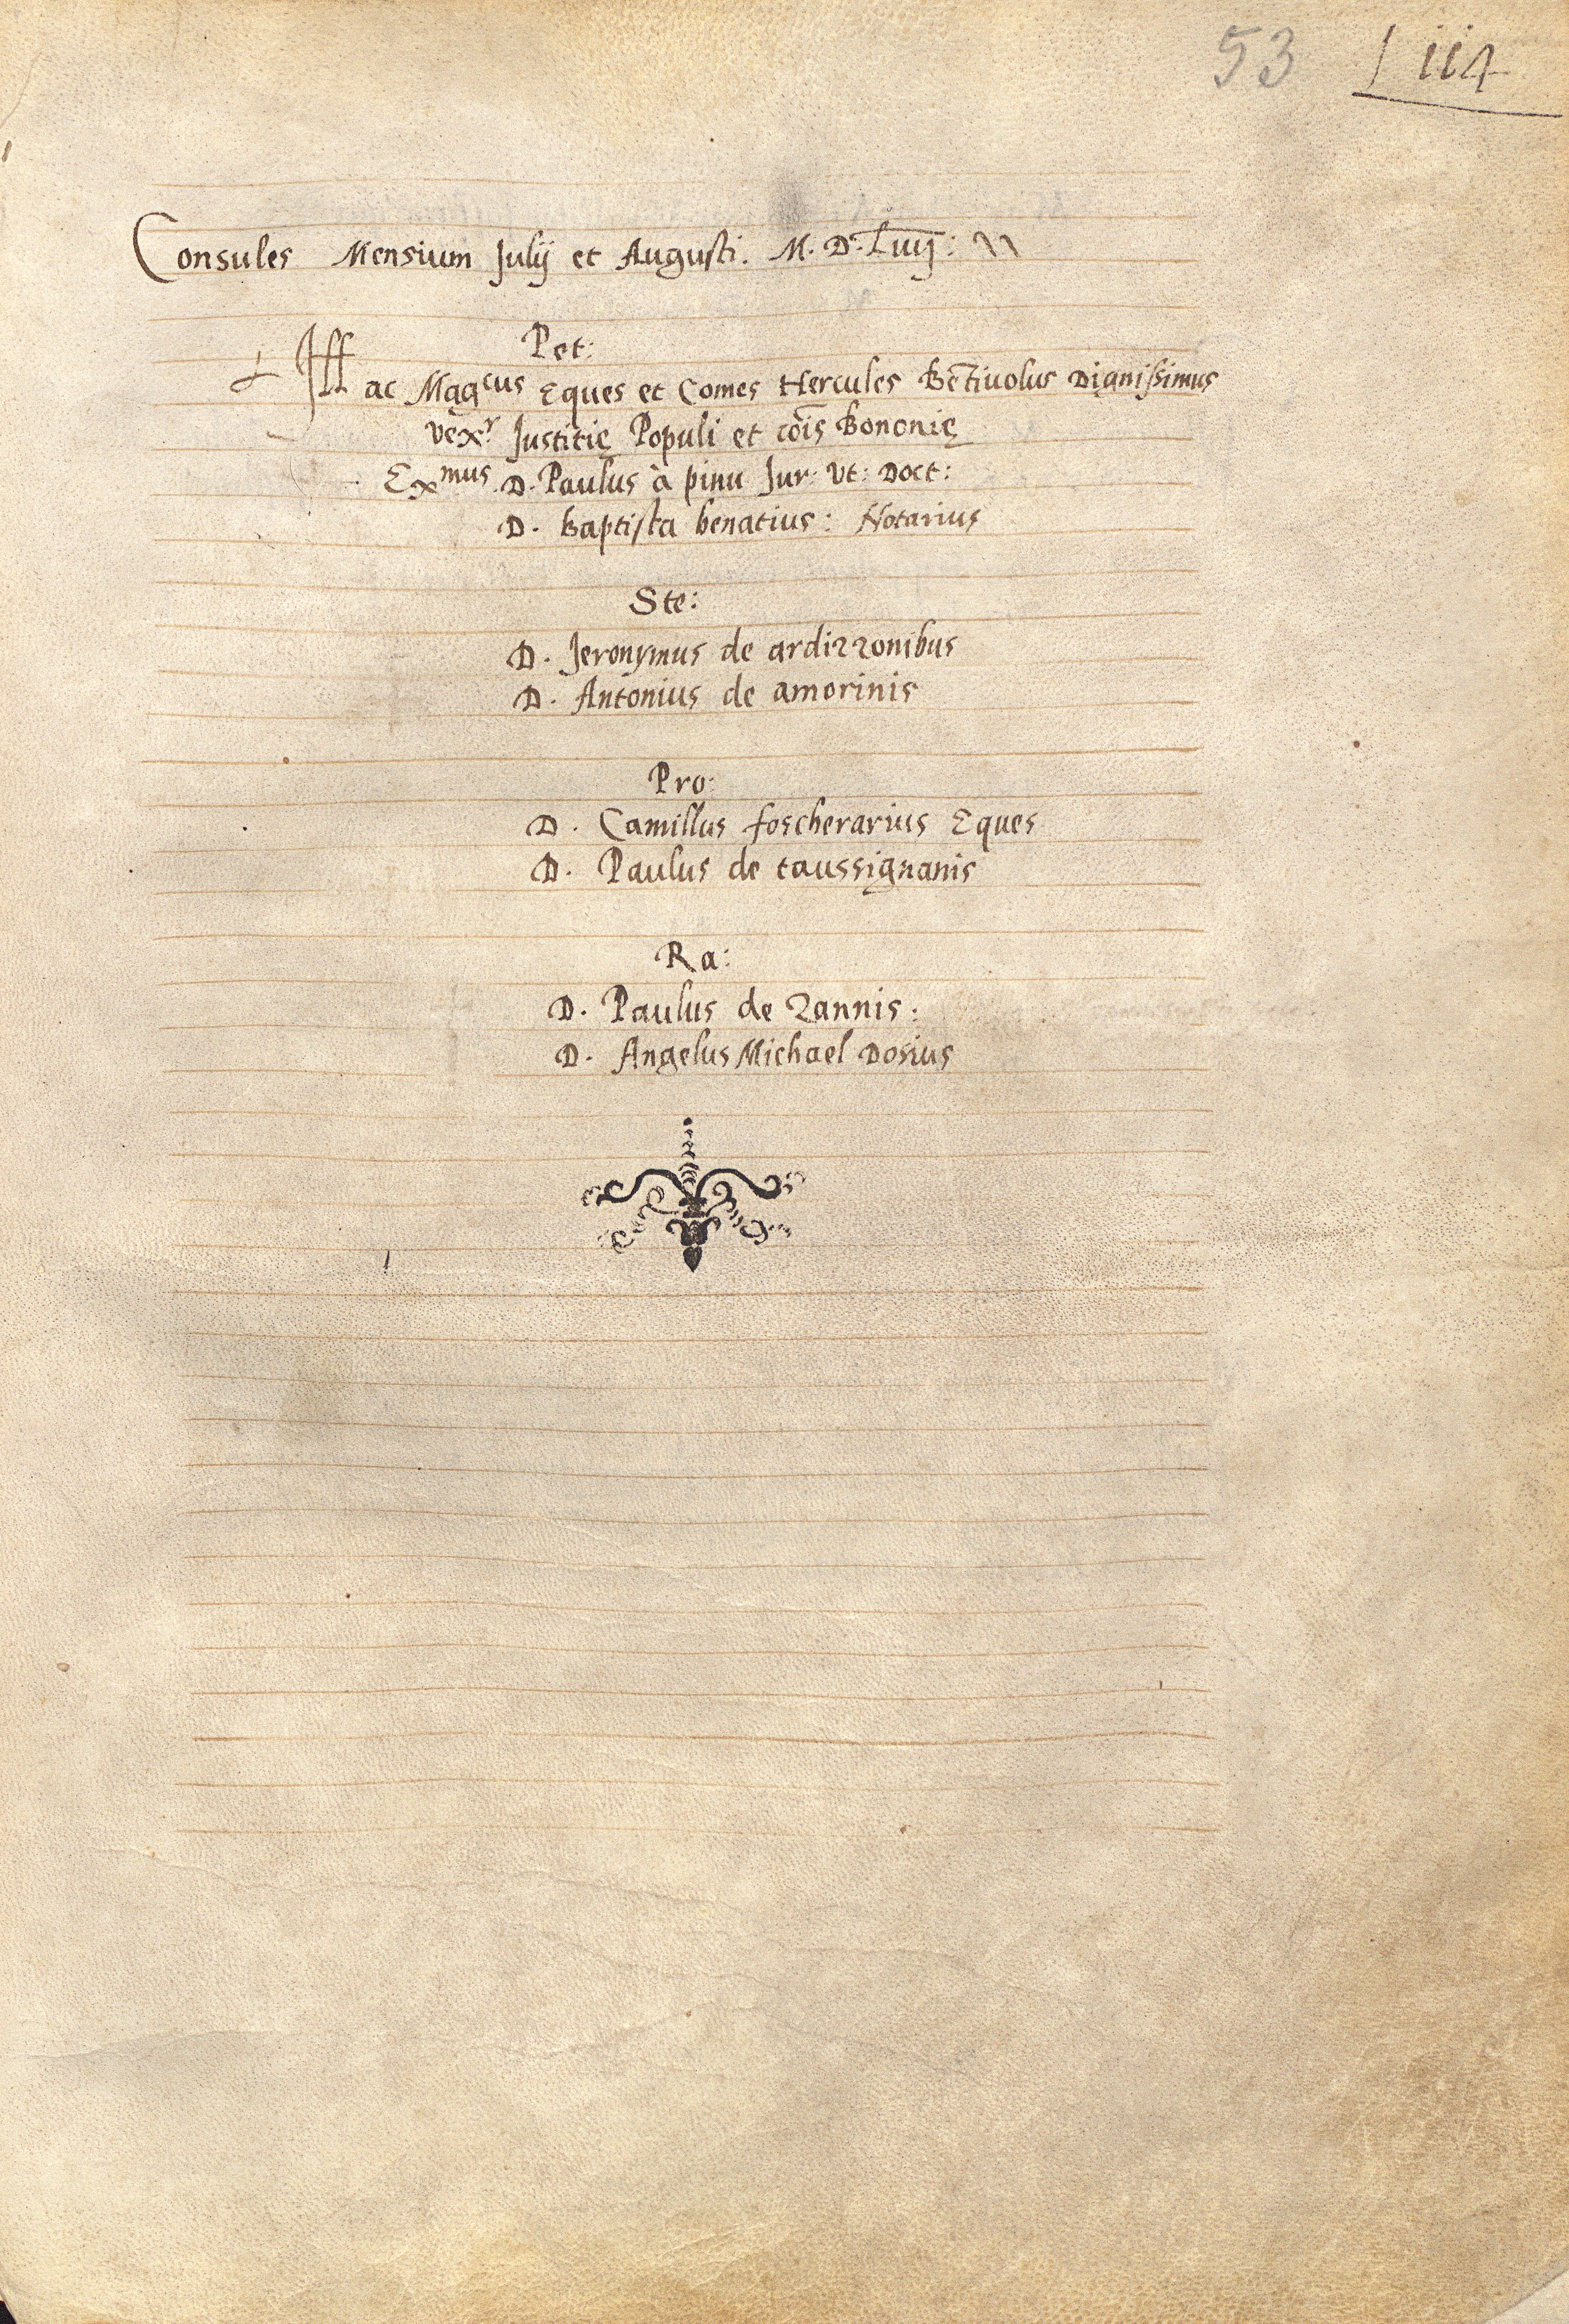 53 114
Consules Mensium Julij et Augusti. M. D. Lvij:
Pet:
Ill ac Mag^cus Eques et Comes Hercules Bētivolus Dignissimus
vex^r Justitię Populi et cōis Bononię
Ex^mus D. Paulus à pinu Jur: Vt: Doct:
D. Baptista benatius: Notarius
Ste:
D. Jeronymus de ardizzonibus
D. Antonius de amorinis
Pro:
D. Camillus foscherarius Eques
D. Paulus de taussignanis
Ra:
D. Paulus de zannis:
D. Angelus Michael Dosius